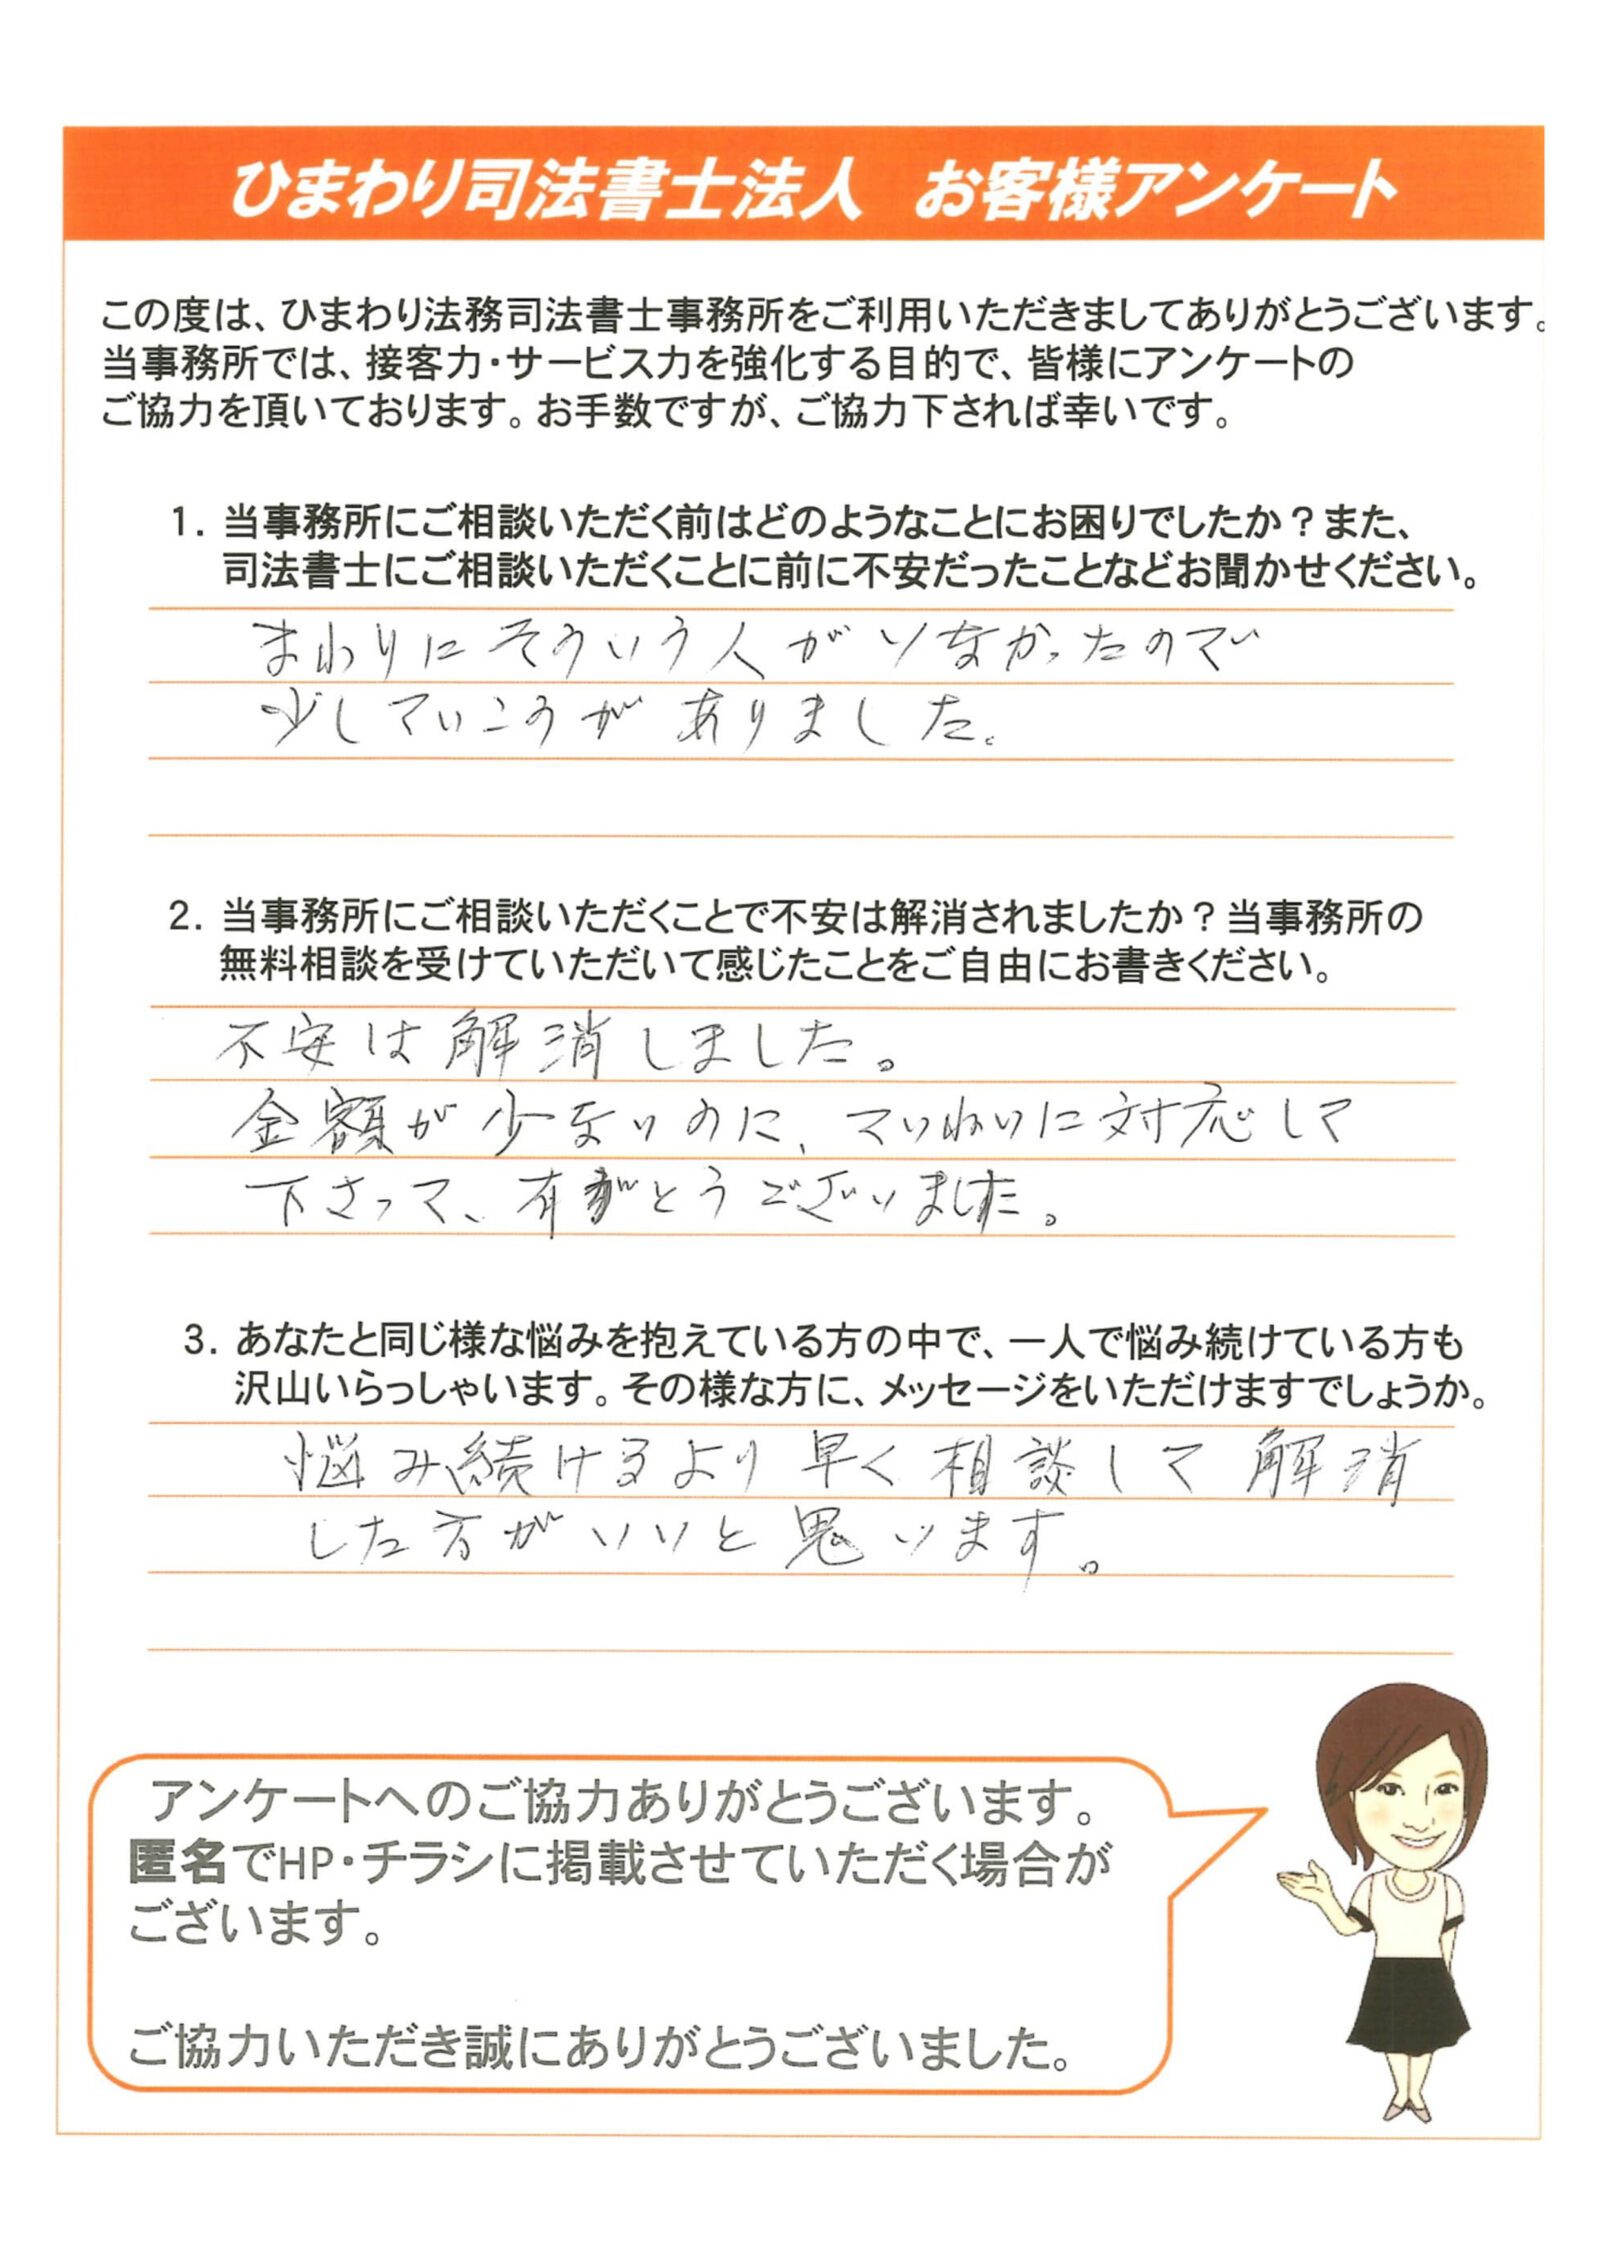 ひまわり司法書士法人　お客様アンケート
この度は、ひまわり法務司法書士事務所をご利用いただきましてありがとうございます。
当事務所では、接客力・サービス力を強化する目的で、皆様にアンケートの
ご協力を頂いております。お手数ですが、ご協力下されば幸いです。
1. 当事務所にご相談いただく前はどのようなことにお困りでしたか？また、
司法書士にご相談いただくことに前に不安だったことなどお聞かせください。
まわりにそういう人がいなかったので
少していこうがありました。
2. 当事務所にご相談いただくことで不安は解消されましたか？当事務所の
無料相談を受けていただいて感じたことをご自由にお書きください。
不安は解消しました。
金額が少ないのに、ていねいに対応して
下さって、有がとうございました。
3. あなたと同じ様な悩みを抱えている方の中で、一人で悩み続けている方も
沢山いらっしゃいます。その様な方に、メッセージをいただけますでしょうか。
悩み続けるより早く相談して解消
した方がいいと思います。
アンケートへのご協力ありがとうございます。
匿名でHP・チラシに掲載させていただく場合が
ございます。
ご協力いただき誠にありがとうございました。